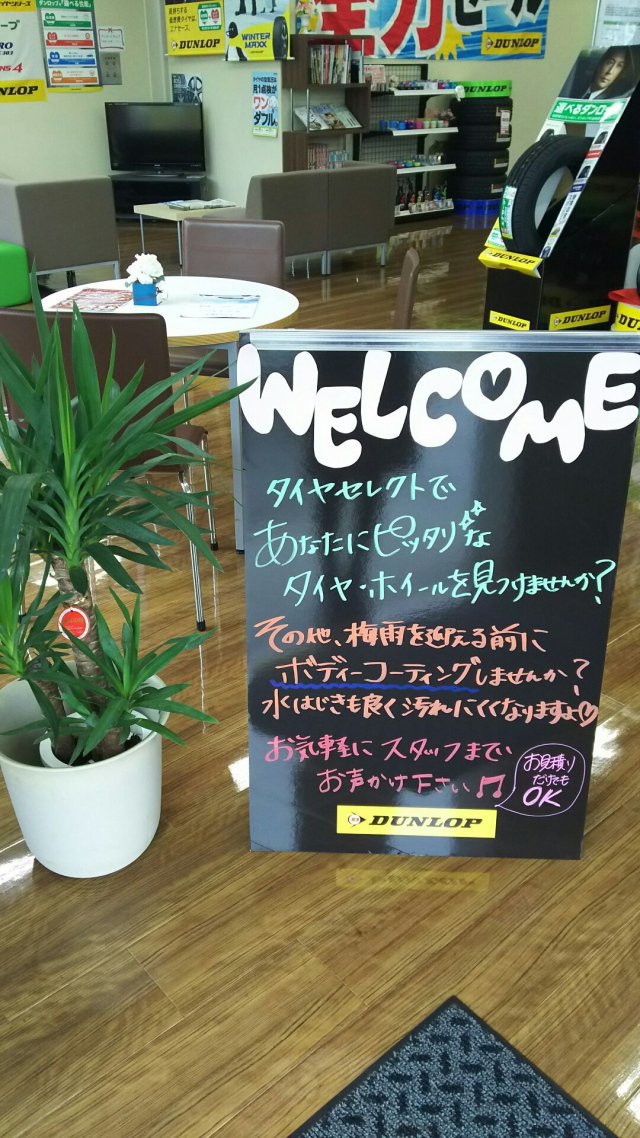 DUNLOP
WINTER MAXX
DUNLOP
全力セール
DUNLOP
月1点検が
ワン
ダブル。
DUNLOP
DUNLOP
DUNLOP
DUNLOP
WELCOME
タイヤセレクトで
あなたにピッタリな
タイヤ・ホイールを見つけませんか?
その他、梅雨を迎える前に
ボディーコーティングしませんか?
水はじきも良く汚れにくくなりますよ♡
お気軽にスタッフまで
お声かけ下さい♫
お見積り
だけでも
OK
DUNLOP